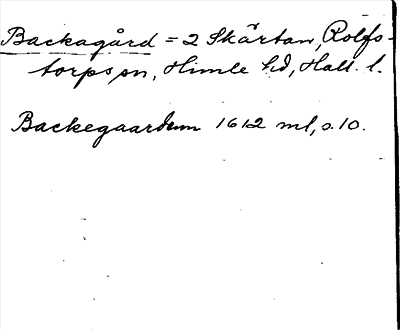 Backagård = 2 Skärtan, Rolfs-
torps sn, Himle hd, Hall. l.
Backegaardenn 1612 ml, s. 10.